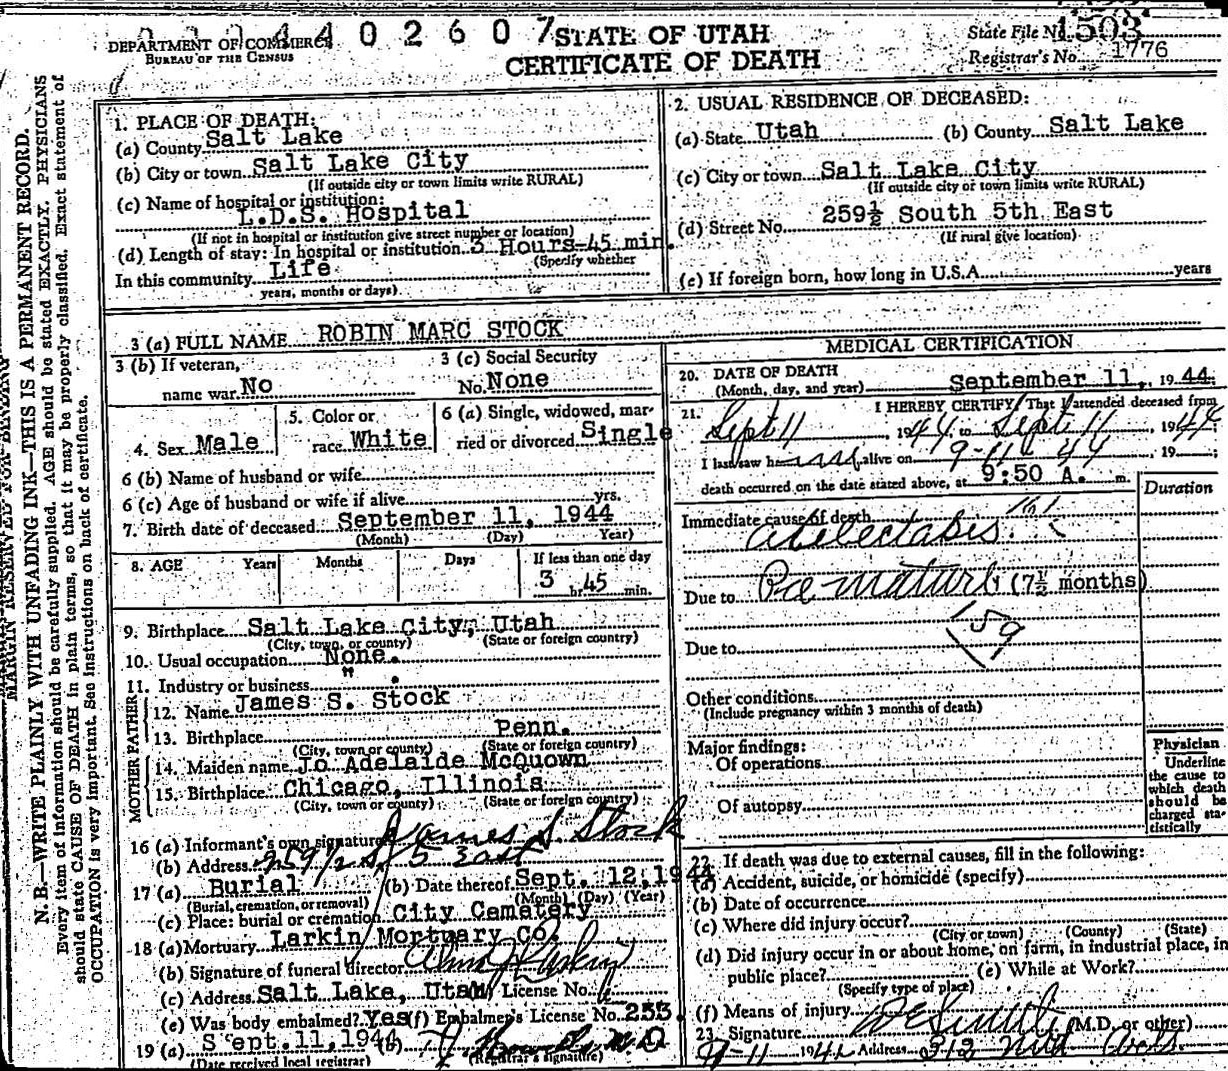 402607
STATE OF UTAH
CERTIFICATE OF DEATH
DEPARTMENT OF COMMERCE
BUREAU OF THE CENSUS
State File No. 1503
Registrar's No. 1776
MARGIN RESERVED FOR BINDING
N.B.—WRITE PLAINLY WITH UNFADING INK—THIS IS A PERMANENT RECORD.
Every item of information should be carefully supplied. AGE should be stated EXACTLY. PHYSICIANS
should state CAUSE OF DEATH in plain terms, so that it may be properly classified. Exact statement of
OCCUPATION is very important. See instructions on back of certificate.
1. PLACE OF DEATH:
(a) County Salt Lake
(b) City or town Salt Lake City
(If outside city or town limits write RURAL)
(c) Name of hospital or institution:
L.D.S. Hospital
(If not in hospital or institution give street number or location)
(d) Length of stay: In hospital or institution 3 Hours-45 min.
(Specify whether
In this community Life
years, months or days)
2. USUAL RESIDENCE OF DECEASED:
(a) State Utah (b) County Salt Lake
(c) City or town Salt Lake City
(If outside city or town limits write RURAL)
(d) Street No. 259½ South 5th East
(If rural give location)
(e) If foreign born, how long in U.S.A. years
3 (a) FULL NAME ROBIN MARC STOCK
3 (b) If veteran, name war No
3 (c) Social Security No. None
4. Sex Male
5. Color or race White
6 (a) Single, widowed, married or divorced Single
6 (b) Name of husband or wife
6 (c) Age of husband or wife if alive yrs.
7. Birth date of deceased September 11, 1944
(Month) (Day) Year)
8. AGE Years Months Days If less than one day
3 hr. 45 min.
9. Birthplace Salt Lake City, Utah
(City, town, or county) (State or foreign country)
10. Usual occupation None.
11. Industry or business "
FATHER
12. Name James S. Stock
13. Birthplace Penn.
(City, town or county) (State or foreign country)
MOTHER
14. Maiden name Jo Adelaide McQuown
15. Birthplace Chicago, Illinois
(City, town or county) (State or foreign country)
16 (a) Informant's own signature James S Stock
(b) Address 259 1/2 So 5 East
17 (a) Burial (b) Date thereof Sept. 12, 1944
(Burial, cremation, or removal) (Month) (Day) (Year)
(c) Place: burial or cremation City Cemetery
18 (a) Mortuary Larkin Mortuary Co.
(b) Signature of funeral director
(c) Address Salt Lake, Utah License No.
(e) Was body embalmed? Yes (f) Embalmer's License No. 253.
19 (a) Sept.11,1944 (b)
(Date received local registrar) (Registrar's signature)
MEDICAL CERTIFICATION
20. DATE OF DEATH
(Month, day, and year) September 11, 1944
21. I HEREBY CERTIFY, That I attended deceased from
Sept 11, 1944 to Sept 11, 1944
I last saw him alive on 9-11 44, 19 ;
death occurred on the date stated above, at 9:50 A. m.
Duration
Immediate cause of death
Atelectasis
Due to Prematurity (7½ months)
159
Due to
Other conditions
(Include pregnancy within 3 months of death)
Major findings:
Of operations
Of autopsy
Physician
Underline
the cause to
which death
should be
charged sta-
tistically
22. If death was due to external causes, fill in the following:
(a) Accident, suicide, or homicide (specify)
(b) Date of occurrence
(c) Where did injury occur?
(City or town) (County) (State)
(d) Did injury occur in or about home, on farm, in industrial place, in
public place? (e) While at Work?
(Specify type of place)
(f) Means of injury
23. Signature (M.D. or other)
9-11 1944 Address 312 Med Arts.